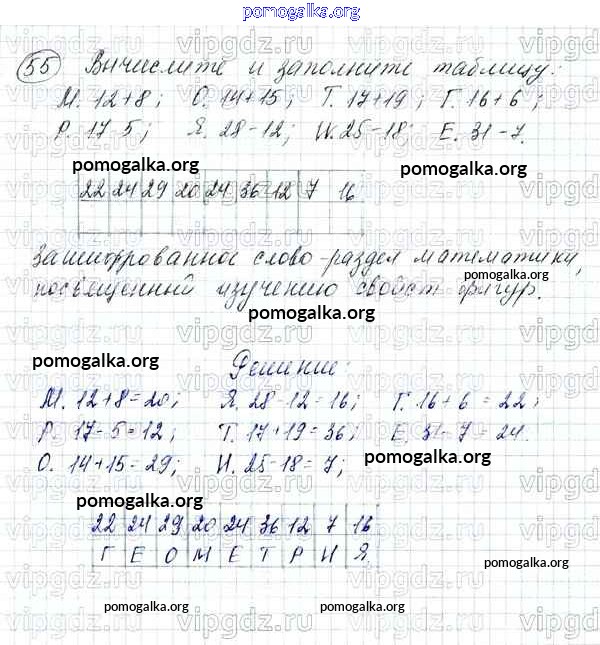 pomogalka.org
55 Вычислите и заполните таблицу:
М. 12+8; О. 14+15; Т. 17+19; Г. 16+6;
Р. 17-5; Я. 28-12; И. 25-18; Е. 31-7.
pomogalka.org pomogalka.org
22 24 29 20 24 36 12 7 16
Зашифрованное слово-раздел математики,
pomogalka.org
посвященный изучению свойст фигур.
pomogalka.org
pomogalka.org
Решение:
М. 12+8=20; Я. 28-12=16; Г. 16+6=22;
Р. 17-5=12; Т. 17+19=36; Е. 31-7=24.
О. 14+15=29; И. 25-18=7;
pomogalka.org
pomogalka.org
22 24 29 20 24 36 12 7 16
Г Е О М Е Т Р И Я
pomogalka.org
pomogalka.org pomogalka.org pomogalka.org
vipgdz.ru vipgdz.ru vipgdz.ru